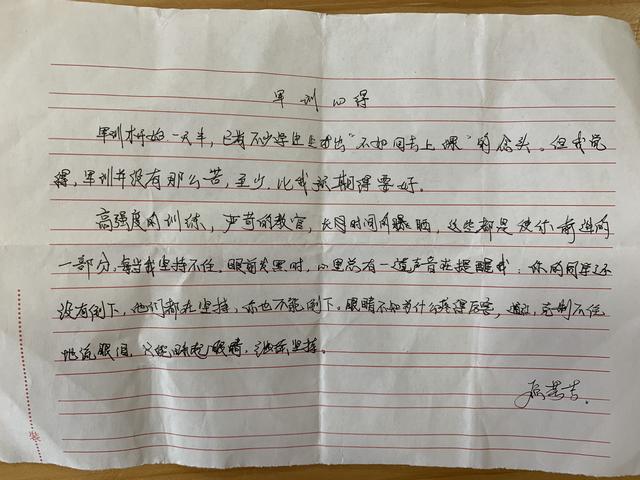 军训心得
军训才开始一天半，已有不少学生生出“不如回去上课”的念头。但我觉
得，军训并没有那么苦，至少，比我预期得要好。
高强度的训练，严苛的教官，长时间的曝晒，这些都是使你前进的
一部分，每当我坚持不住，眼前发黑时，心里总有一道声音在提醒我：你的同军还
没有倒下，他们都在坚持，你也不能倒下，眼睛不知为什么疼得厉害，通红，克制不住
地流眼泪，只能眯起眼睛，继续坚持。
装